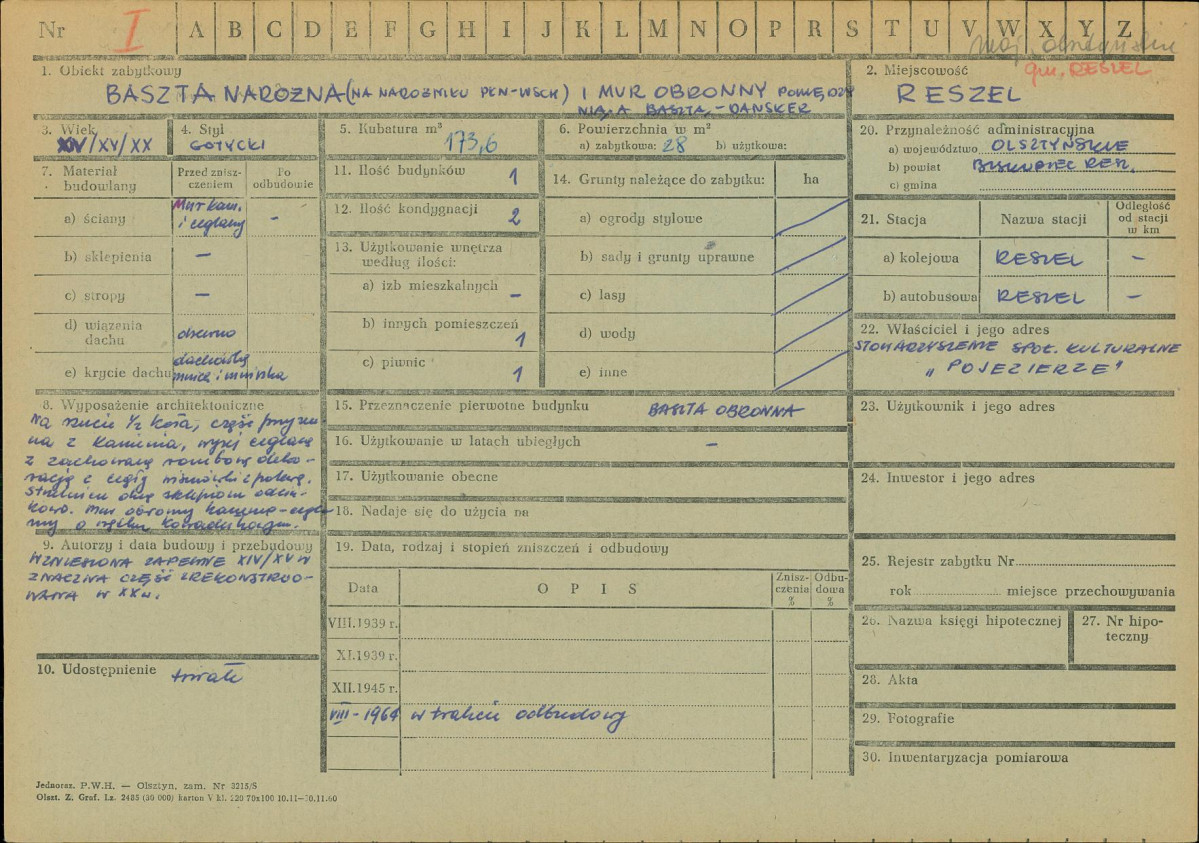 Nr I A B C D E F G H I J K L M N O P R S T U V W X Y Z
woj. olsztyńskie
gm. RESZEL
1. Obiekt zabytkowy
BASZTA NAROŻNA (NA NAROŻNIKU PŁN-WSCH) I MUR OBRONNY POMIĘDZY
NIĄ, A BASZTĄ - DANSKER
2. Miejscowość
RESZEL
3. Wiek
XIV/XV/XX
4. Styl
GOTYCKI
5. Kubatura m³
173,6
6. Powierzchnia w m²
a) zabytkowa: 28 b) użytkowa:
7. Materiał budowlany
Przed zniszczeniem
Po odbudowie
a) ściany
Mur kam. i ceglany
-
b) sklepienia
-
c) stropy
-
d) wiązania dachu
drewno
e) krycie dachu
dachówką mnich i mniszka
8. Wyposażenie architektoniczne
Na rzucie 1/2 koła, część przyziem
na z kamienia, wyżej ceglana
z zachowaną rombową deko-
racją z cegły
9. Autorzy i data budowy i przebudowy
WZNIESIONA ZAPEWNE XIV/XV W
ZNACZNA CZĘŚĆ ZREKONSTRUO-
WANA W XX w.
10. Udostępnienie
trwałe
11. Ilość budynków
1
12. Ilość kondygnacji
2
13. Użytkowanie wnętrza według ilości:
a) izb mieszkalnych
-
b) innych pomieszczeń
1
c) piwnic
1
14. Grunty należące do zabytku:
ha
a) ogrody stylowe
b) sady i grunty uprawne
c) lasy
d) wody
e) inne
15. Przeznaczenie pierwotne budynku
BASZTA OBRONNA
16. Użytkowanie w latach ubiegłych
-
17. Użytkowanie obecne
18. Nadaje się do użycia na
19. Data, rodzaj i stopień zniszczeń i odbudowy
Data
O P I S
Zniszczenia %
Odbudowa %
VIII.1939 r.
XI.1939 r.
XII.1945 r.
VIII - 1964 w trakcie odbudowy
20. Przynależność administracyjna
a) województwo OLSZTYŃSKIE
b) powiat BISKUPIEC RESZ.
c) gmina
21. Stacja
Nazwa stacji
Odległość od stacji w km
a) kolejowa
RESZEL
-
b) autobusowa
RESZEL
-
22. Właściciel i jego adres
STOWARZYSZENIE SPOŁ. KULTURALNE
„POJEZIERZE"
23. Użytkownik i jego adres
24. Inwestor i jego adres
25. Rejestr zabytku Nr
rok miejsce przechowywania
26. Nazwa księgi hipotecznej
27. Nr hipoteczny
28. Akta
29. Fotografie
30. Inwentaryzacja pomiarowa
Jednoraz. P.W.H. — Olsztyn, zam. Nr 3215/S
Olszt. Z. Graf. Lz. 2485 (30 000) karton V kl. 220 70x100 10.11—30.11.60